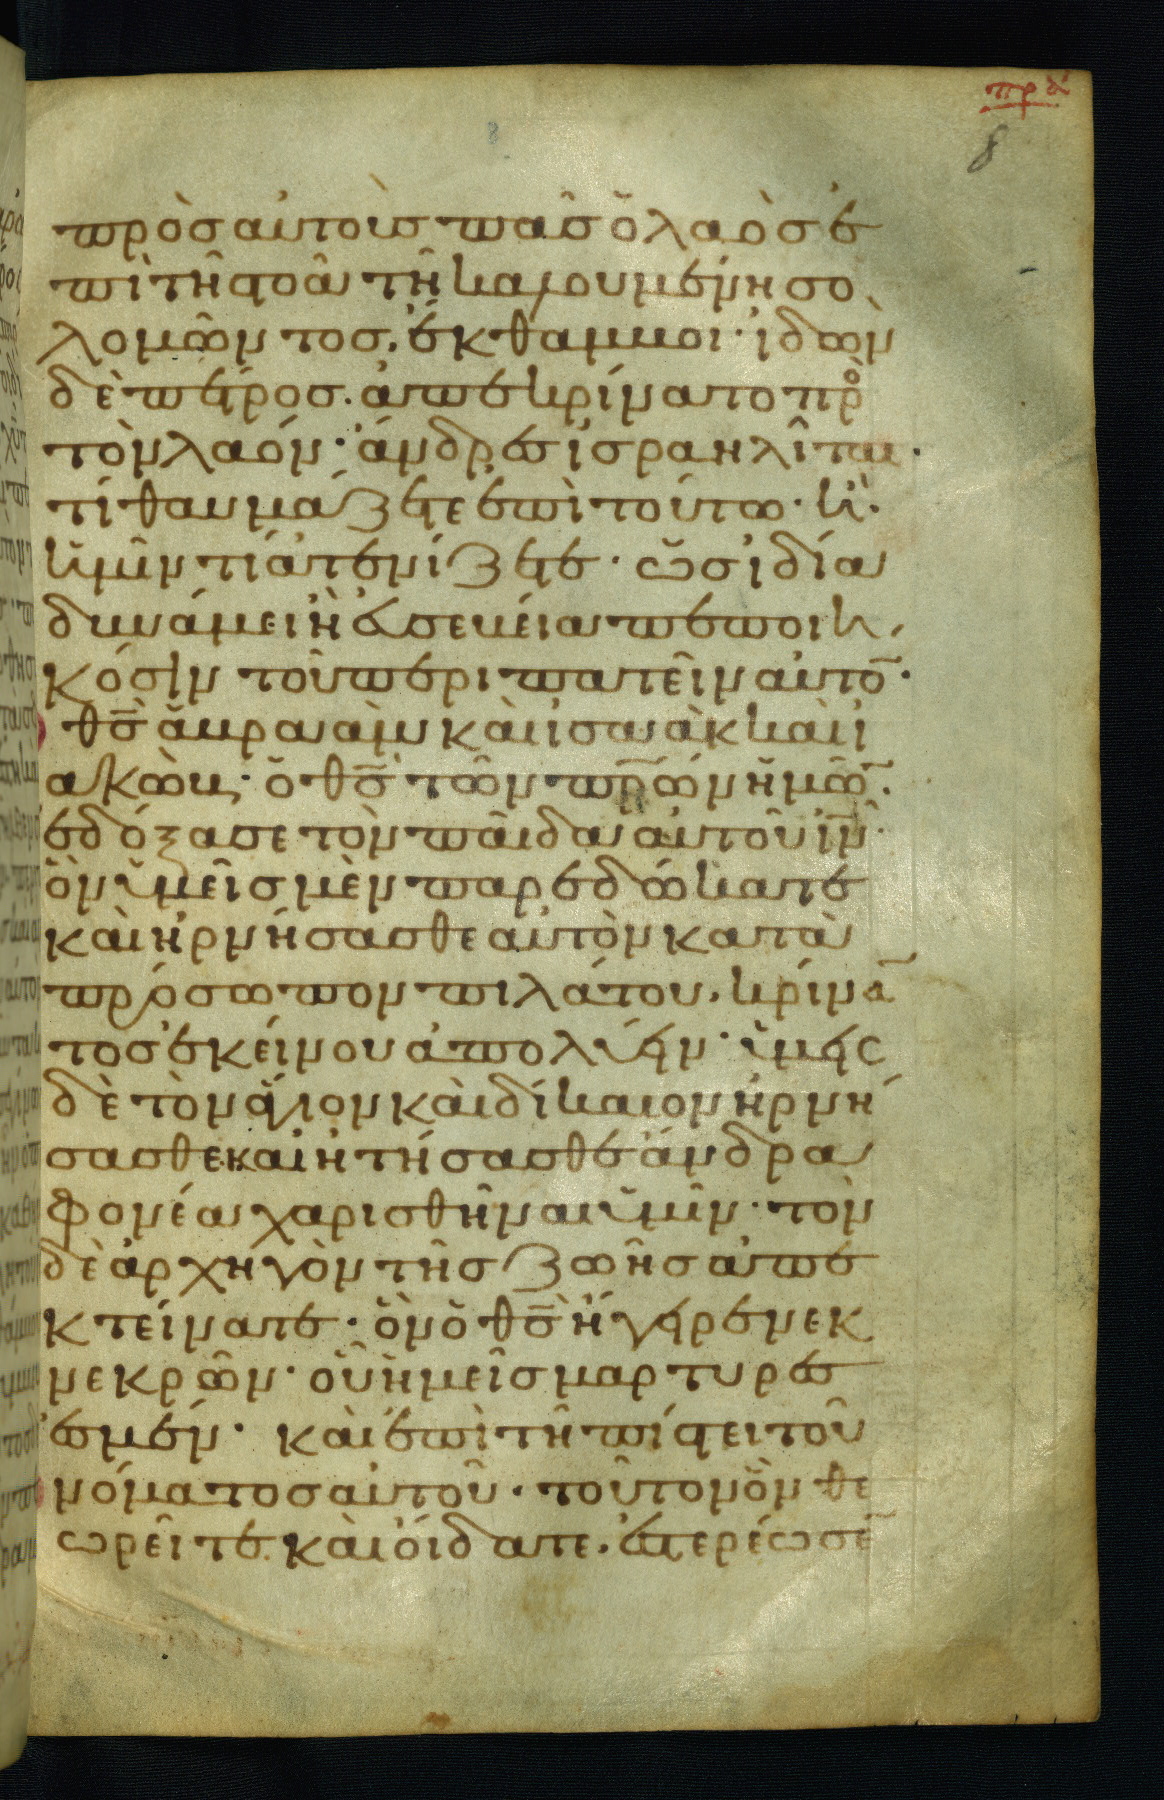 πρ α
8
πρὸς αὐτοὺς πᾶς ὁ λαὸς ἐ
πὶ τῆ στοᾶ τῆ καλουμένη σο
λομῶντος. ἔκθαμμοι· ἰδὼν
δὲ πέτρος. ἀπεκρίνατο πρὸ
τὸν λαόν· ἄνδρες ἰσραηλῖται·
τί θαυμάζετε ἐπὶ τούτω· ἢ
ἡμῖν τί ἀτενίζετε· ὡς ἰδία
δυνάμει ἢ εὐσεβεία πεποιη
κόσιν τοῦ περιπατεῖν αὐτό̅·
θς̅ ἀβραὰμ καὶ ἰσαὰκ καὶ ἰ
ακώβ· ὁ θς̅ τῶν πρ̅ων ἡμῶ̅.
ἐδόξασε τὸν παῖδα αὐτοῦ ιν̅·
ὃν ὑμεῖς μὲν παρεδώκατε
καὶ ἠρνήσασθε αὐτὸν κατὰ
πρόσωπον πιλάτου. κρίνα̅
τος ἐκείνου ἀπολύειν· ὑμεῖς
δὲ τὸν ἅγιον καὶ δίκαιον ἠρνή
σασθε. καὶ ἠτήσασθε ἄνδρα
φονέα χαρισθῆναι ὑμῖν· τὸν
δὲ ἀρχηγὸν τῆς ζωῆς ἀπε
κτείνατε· ὃν ὁ θς̅ ἤγειρεν ἐκ
νεκρῶν· οὗ ἡμεῖς μάρτυρες
ἐσμέν· καὶ ἐπὶ τῆ πίστει τοῦ
νόματος αὐτοῦ· τοῦτον ὃν θε
ωρεῖτε καὶ οἴδατε. ἐστερέωσε̅